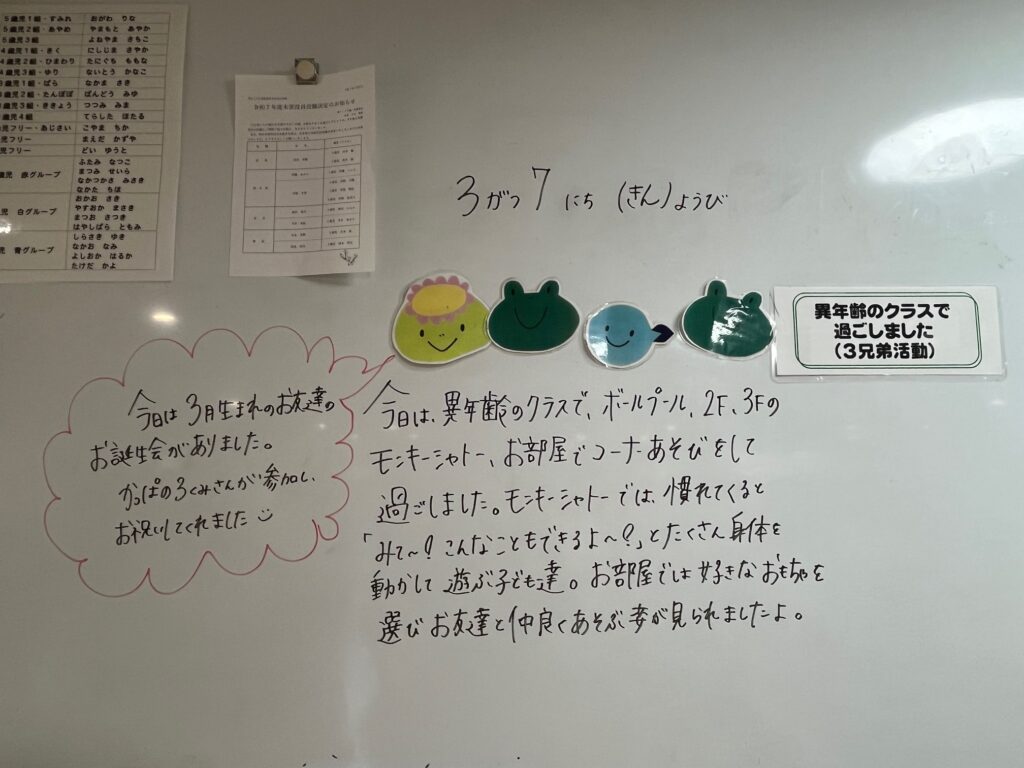 5歳児1組・すみれ おがわ りな
5歳児2組・あやめ やまもと あやか
5歳児3組 よねやま さちこ
4歳児1組・きく にしじま さやか
4歳児2組・ひまわり たにぐち ももな
4歳児3組・ゆり ないとう かなこ
歳児1組・ばら なかま さき
歳児2組・たんぽぽ ばんどう みゆ
歳児3組・ききょう つつみ みま
歳児4組 てらした ほたる
児フリー・あじさい こやま ちか
児フリー まえだ かずや
児フリー どい ゆうと
歳児 赤グループ ふたみ なつこ
まつみ せいら
なかつかさ みさき
なかた ちほ
児 白グループ おかお さき
やすおか まさき
まつお さつき
はやしばら ともみ
児 青グループ しらさき ゆき
なかお なみ
よしおか はるか
たけだ かよ
令和7年度本部役員役職決定のお知らせ
3がつ7にち(きん)ようび
異年齢のクラスで
過ごしました
(3兄弟活動)
今日は3月生まれのお友達の
お誕生会がありました。
かっぱの3くみさんが参加し、
お祝いしてくれました
今日は、異年齢のクラスで、ボールプール、2F、3Fの
モンキーシャトー、お部屋でコーナーあそびをして
過ごしました。モンキーシャトーでは、慣れてくると
「みて〜!こんなこともできるよ〜?」とたくさん身体を
動かして遊ぶ子ども達。お部屋では好きなおもちゃを
選びお友達と仲良くあそぶ姿が見られましたよ。